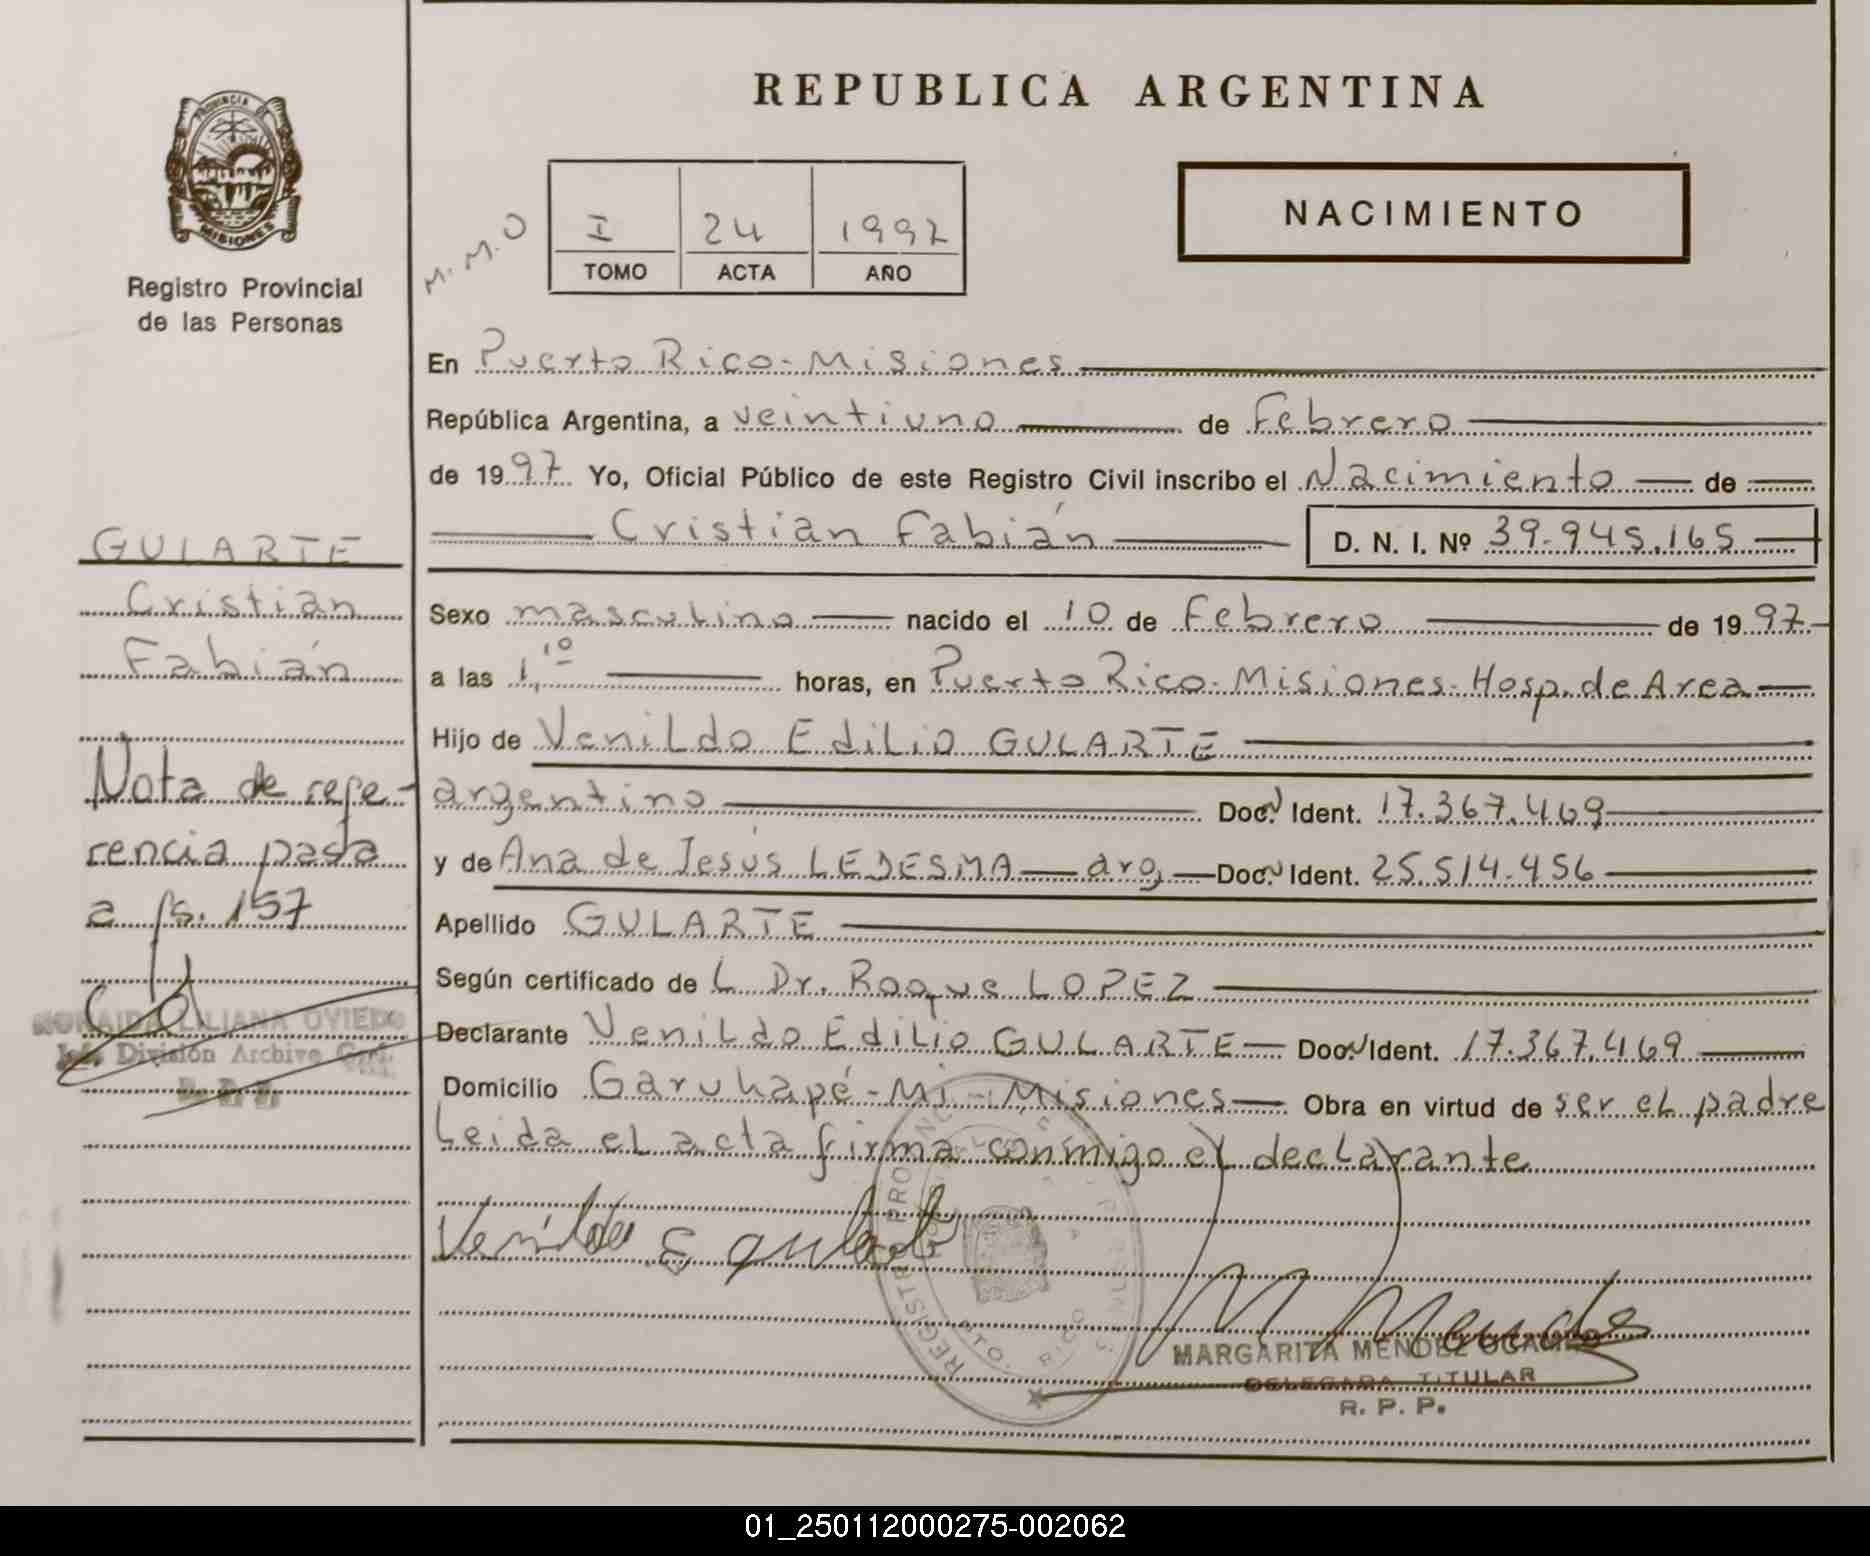 PROVINCIA DE
MISIONES
Registro Provincial
de las Personas
REPUBLICA ARGENTINA
NACIMIENTO
M. M. O
I 24 1997
TOMO ACTA AÑO
En Puerto Rico-Misiones
República Argentina, a veintiuno de Febrero
de 1997 Yo, Oficial Público de este Registro Civil inscribo el Nacimiento de
Cristian Fabián D. N. I. Nº 39.945.165
Sexo masculino nacido el 10 de Febrero de 1997
a las 1,10 horas, en Puerto Rico-Misiones-Hosp. de Area
Hijo de Venildo Edilio GULARTE
argentino Doc. N Ident. 17.367.469
y de Ana de Jesús LEDESMA arg. Doc. N Ident. 25.514.456
Apellido GULARTE
Según certificado de L Dr. Roque LOPEZ
Declarante Venildo Edilio GULARTE Doc. N Ident. 17.367.469
Domicilio Garuhapé-Mi-Misiones Obra en virtud de ser el padre
Leida el acta firma conmigo el declarante
Venildo E gularte
M Mendez
MARGARITA MENDEZ OCAMPO
DELEGADA TITULAR
R. P. P.
REGISTRO PROVINCIAL
PTO. RICO
GULARTE
Cristian
Fabián
Nota de refe-
rencia pasa
a fs. 157
LILIANA OVIEDO
Jefe División Archivo Gral.
R. P. P.
01_250112000275-002062